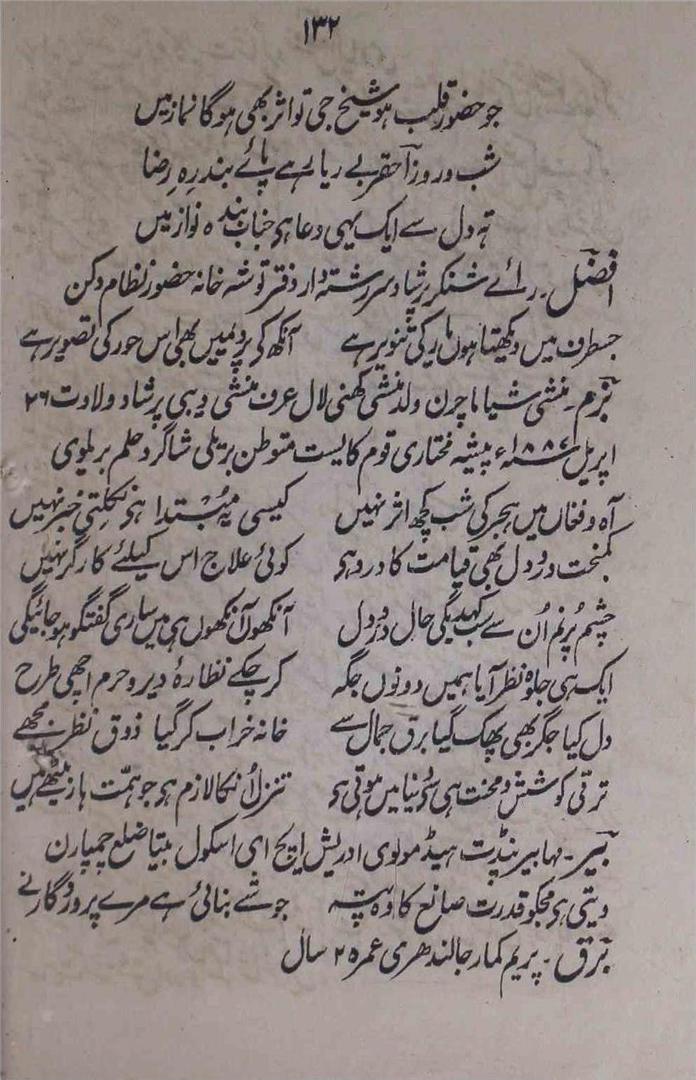 ۱۳۲
جو حضور قلب ہو شیخ جی تو اثر بھی ہوگا نماز میں
شب و روز احقر بے ریا رہے پائے بند رہِ رضا
تہ دل سے ایک یہی دعا ہر جناب بندہ نواز میں
افضل۔ رائے شنکر پرشاد سررشتہ دار دفتر توشہ خانہ حضور نظام دکن
جسطرف میں دیکھتا ہوں یار کی تنویر ہے آنکھ کی پردہ میں بھی اس حور کی تصویر ہے
بزم۔ منشی شیاما چرن ولد منشی کھنی لال عرف منشی دیبی پرشاد ولادت ۲۶
اپریل ۱۸۸۶ء پیشہ مختاری قوم کایست متوطن بریلی شاگرد حلم بریلوی
آہ و فغاں میں ہجر کی شب کچھ اثر نہیں کیسی یہ مبتدا ہے نکلتی خبر نہیں
کمبخت درد دل بھی قیامت کا درد ہے کوئی علاج اس کیلئے کارگر نہیں
چشم پُرنم اُن سے سب کہدیگی حال درد دل آنکھوں آنکھوں ہی میں ساری گفتگو ہو جائیگی
ایک ہی جلوہ نظر آیا ہمیں دونوں جگہ کر چکے نظارۂ دیر و حرم اچھی طرح
دل کیا جگر بھی پھک گیا برق جمال سے خانہ خراب کر گیا ذوق نظر مجھے
ترقی کوشش و محنت ہی سے دنیا میں ہوتی ہے تنزل اُن کا لازم ہے جو ہمت ہار بیٹھے ہیں
بیر۔ مہابیر پنڈت ہیڈ مولوی ادریش ایچ ای اسکول بتیا ضلع چمپارن
دیتی ہے مجکو قدرت صانع کا وہ پتہ جو شے بنائی ہے مرے پروردگار نے
برق۔ پریم کمار جالندھری عمرہ ۲ سال